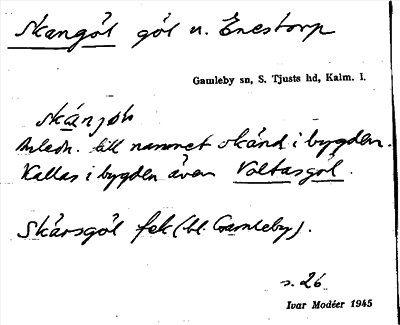 Skangöl göl n. Enestorp
Gamleby sn, S. Tjusts hd, Kalm. l.
skánjøh
Anledn. till namnet okänd i bygden.
Kallas i bygden även Voltasgöl.
Skårsgöl fek (bl. Gamleby).
s. 26
Ivar Modéer 1945